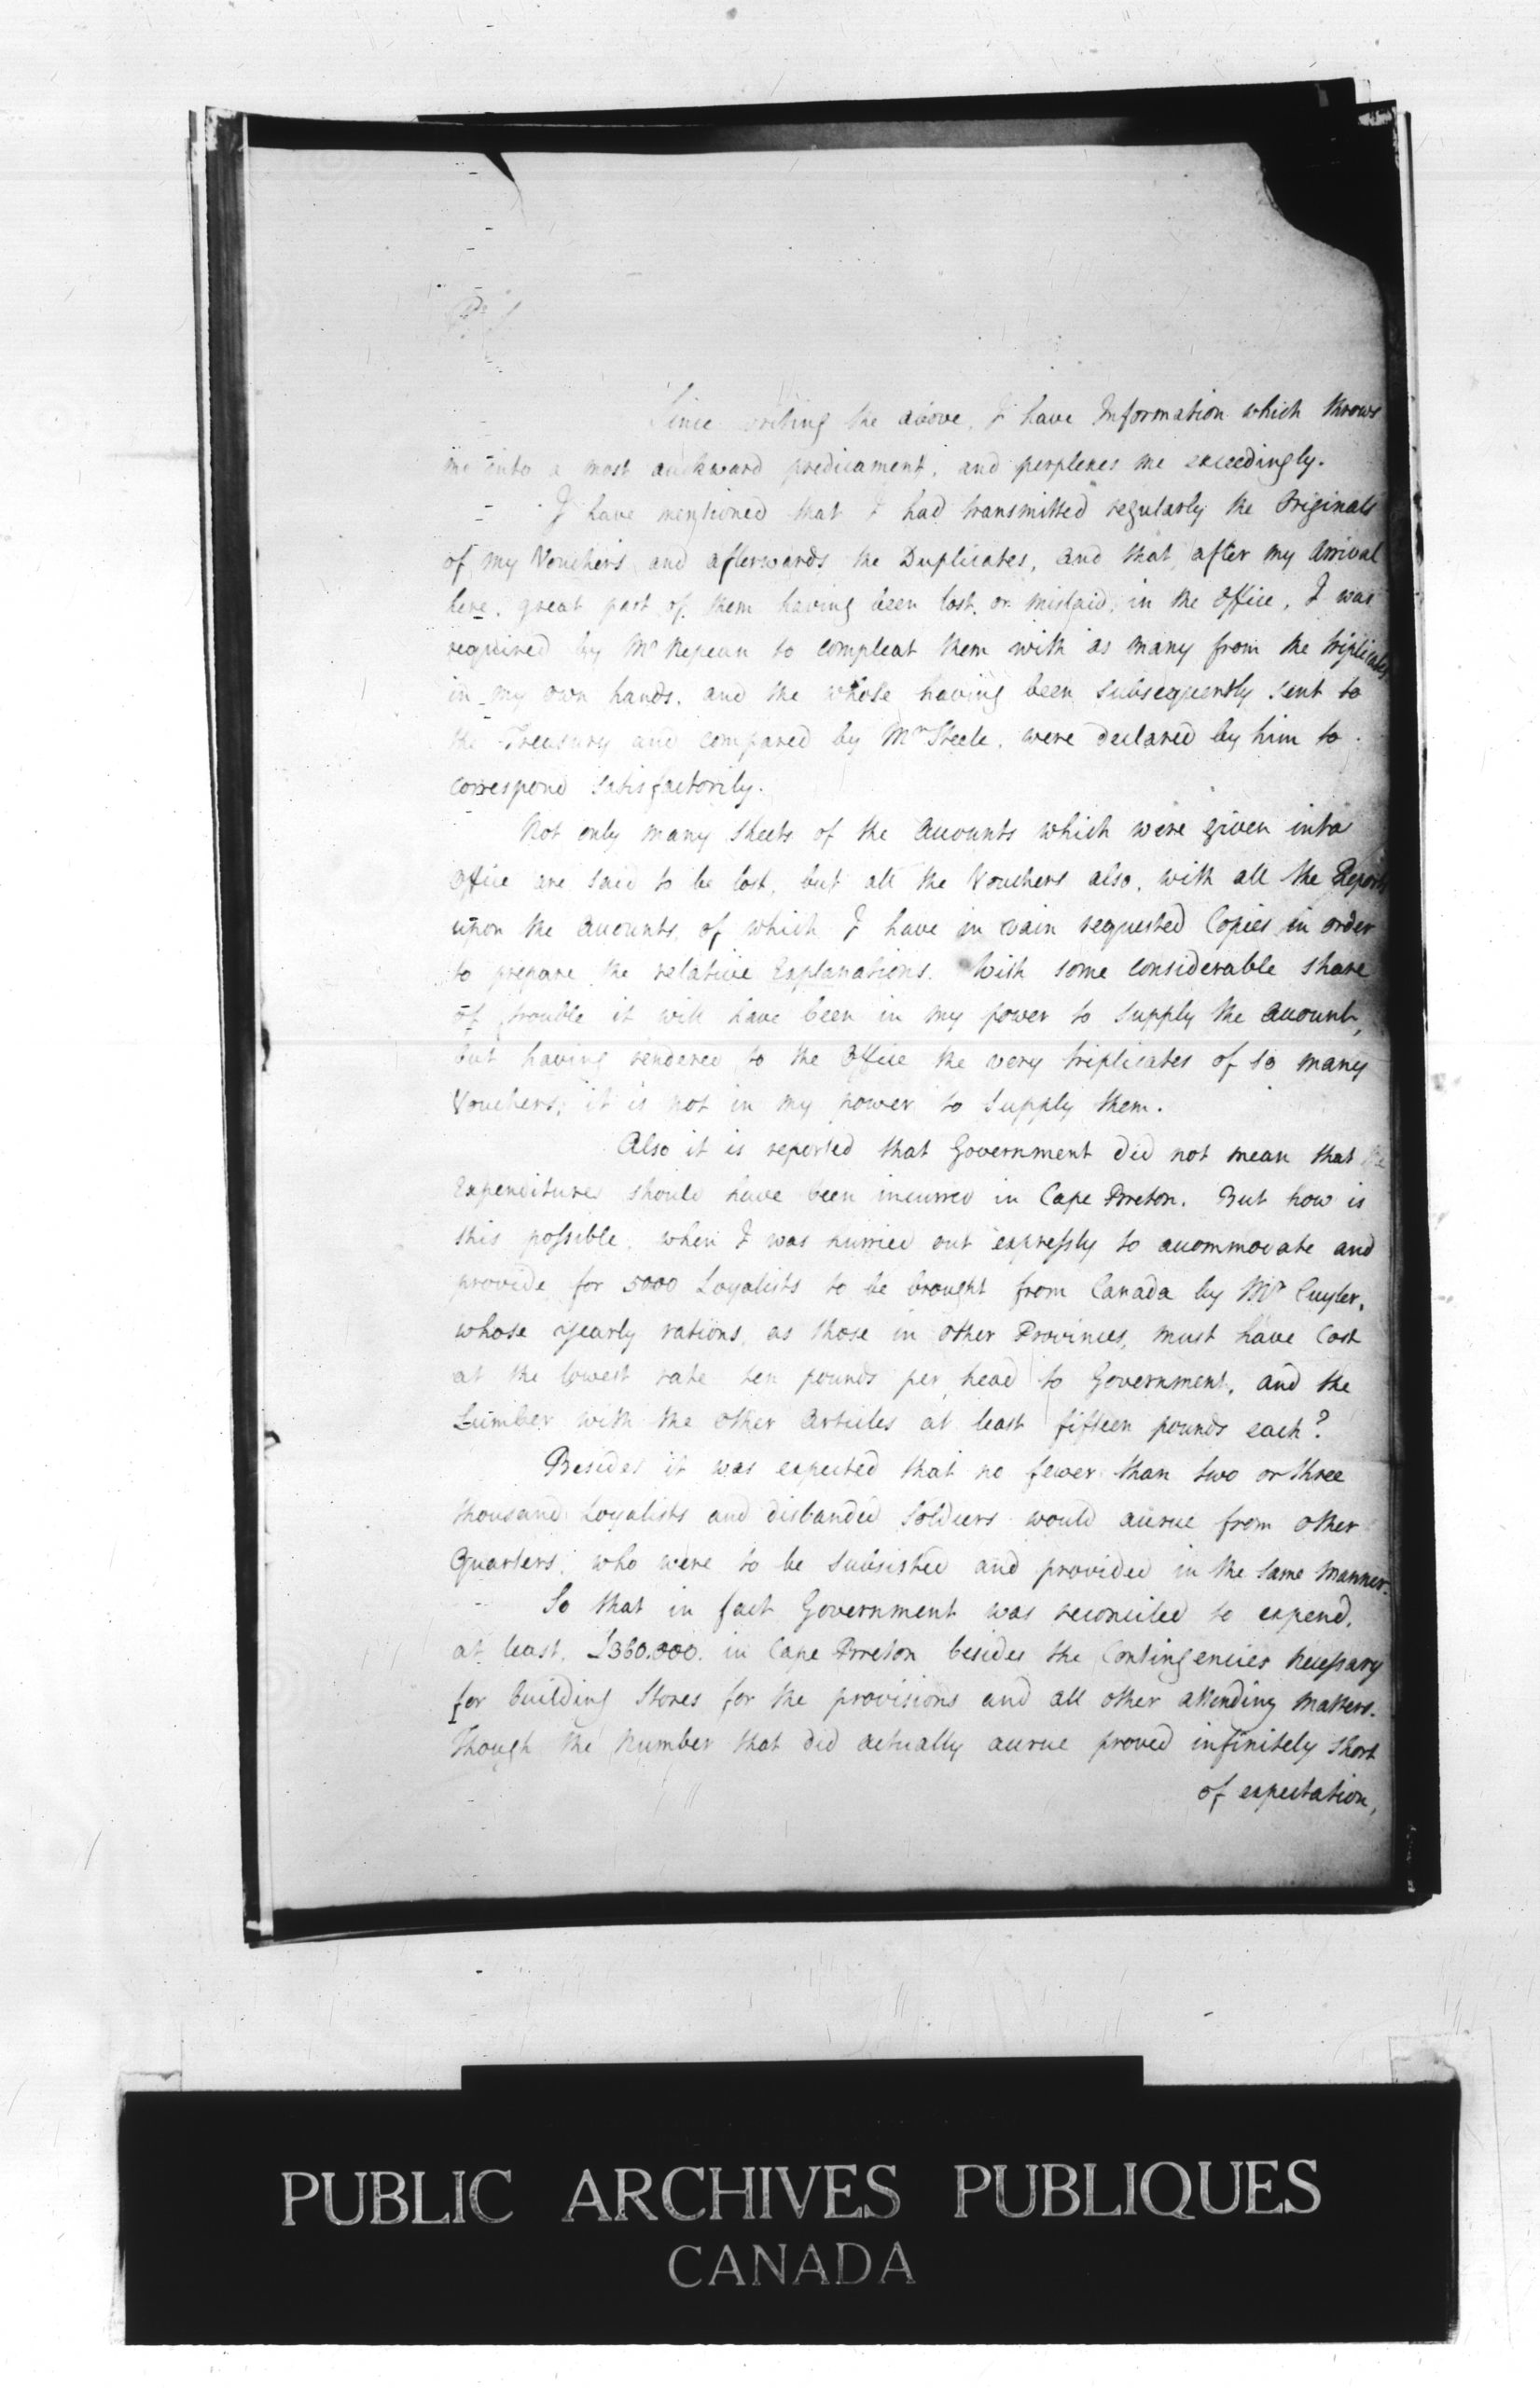 Since writing the above, I have Information which throws
me into a most aukward predicament, and perplexes me exceedingly.
I have mentioned that I had transmitted regularly the Originals
of my Vouchers and afterwards the Duplicates, and that, after my Arrival
here, great part of them having been lost, or mislaid, in the Office, I was
required by Mr Nepean to compleat them with as many from the triplicates
in my own hands, and the whole having been subsequently sent to
the Treasury and compared by Mr Steele, were declared by him to
correspond satisfactorily.
Not only many sheets of the Accounts which were given into
Office are said to be lost, but all the Vouchers also, with all the Reports
upon the Accounts, of which I have in vain requested Copies in order
to prepare the relative Explanations. With some considerable share
of trouble it will have been in my power to supply the Account,
but having rendered to the Office the very triplicates of so many
Vouchers, it is not in my power to supply them.
Also it is reported that Government did not mean that the
Expenditures should have been incurred in Cape Breton. But how is
this possible, when I was hurried out expressly to accommodate and
provide for 5000 Loyalists to be brought from Canada by Mr Cuyler,
whose yearly rations, as those in other Provinces, must have Cost
at the lowest rate ten pounds per head to Government, and the
Lumber with the other Articles at least fifteen pounds each?
Besides it was expected that no fewer than two or three
thousand Loyalists and disbanded Soldiers would accrue from other
Quarters, who were to be subsisted and provided in the same manner.
So that in fact Government was reconciled to expend,
at least, £360.000. in Cape Breton besides the Contingencies necessary
for building Stores for the provisions and all other attending matters.
Though the Number that did actually accrue proved infinitely short
of expectation,
PUBLIC ARCHIVES PUBLIQUES
CANADA